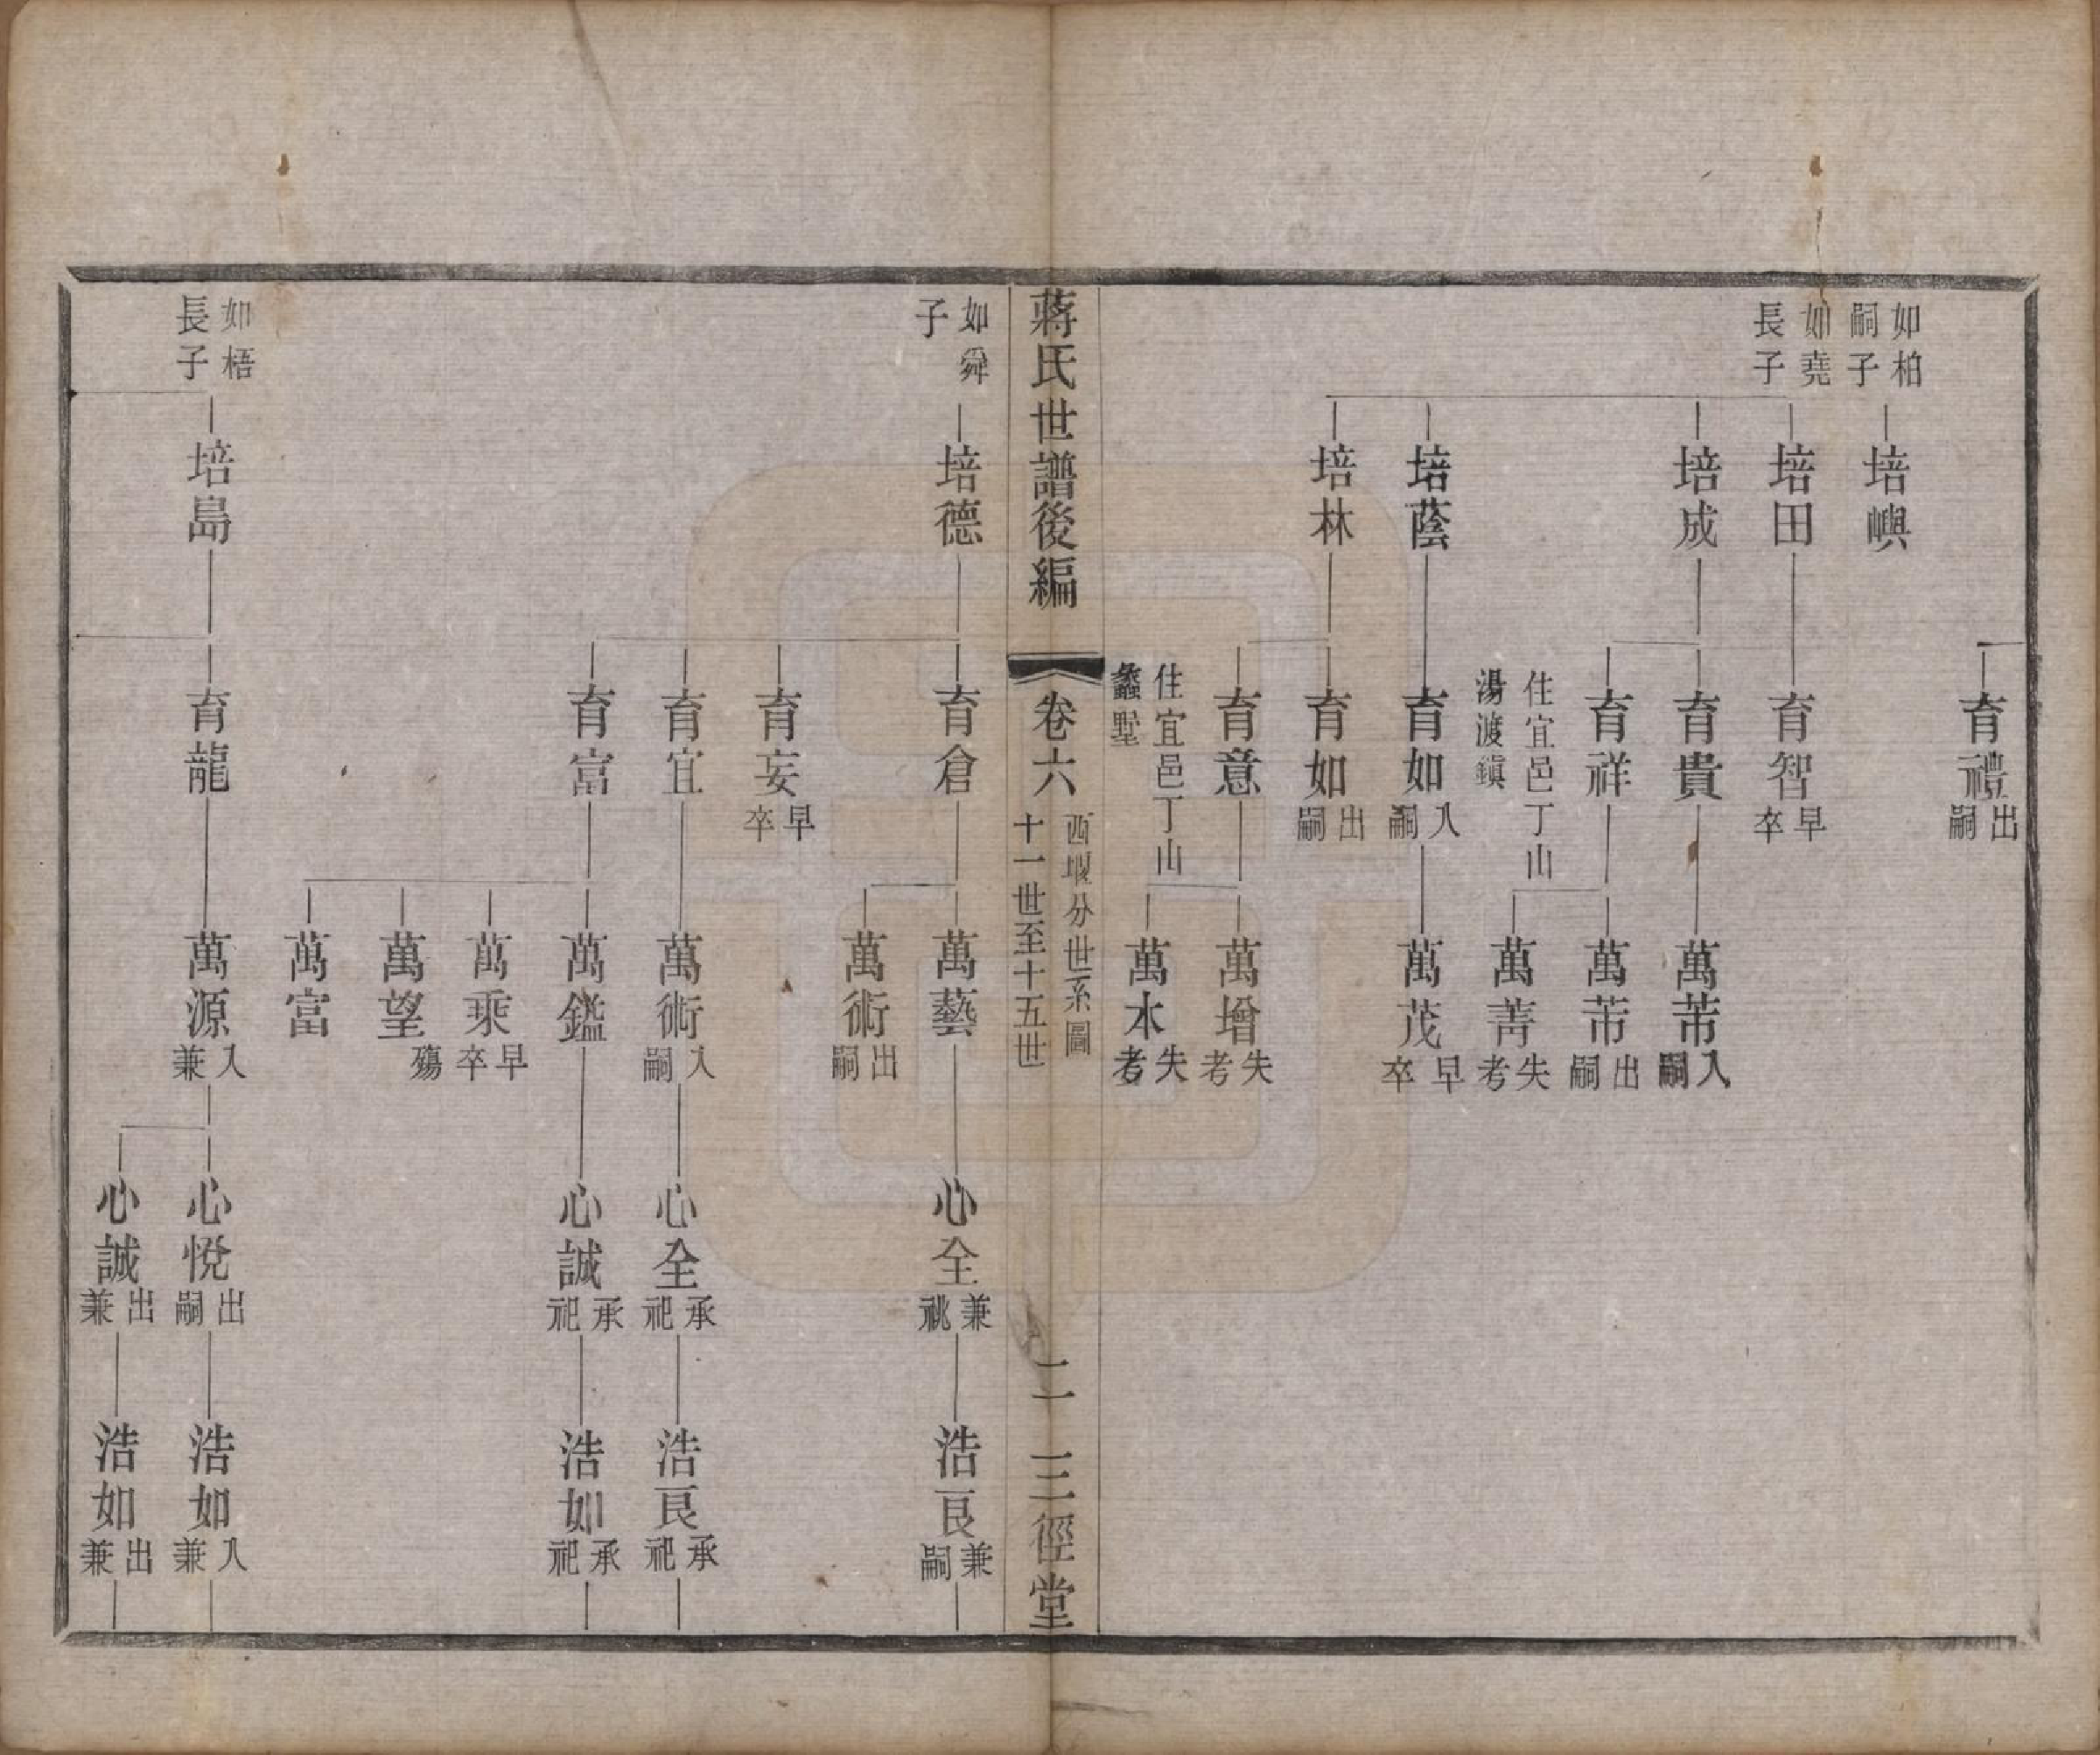 育禮出嗣
如柏嗣子
培嶼
如堯長子
培田
育智早卒
培成
育貴
萬芾入嗣
育祥
萬芾出嗣
住宜邑丁山湯渡鎭
萬菁失考
培蔭
育如入嗣
萬茂早卒
培林
育如出嗣
育意
萬增失考
住宜邑丁山蠡墅
萬木失考
蔣氏世譜後編
卷六
西堰分世系圖
十一世至十五世
二
三徑堂
如舜子
培德
育倉
萬藝
心全兼祧
浩良兼嗣
萬術出嗣
育妄早卒
育宜
萬術入嗣
心全承祀
浩良承祀
育富
萬鑑
心誠承祀
浩如承祀
萬乘早卒
萬望殤
萬富
如梧長子
培島
育龍
萬源入兼
心悅出嗣
浩如入兼
心誠出兼
浩如出兼